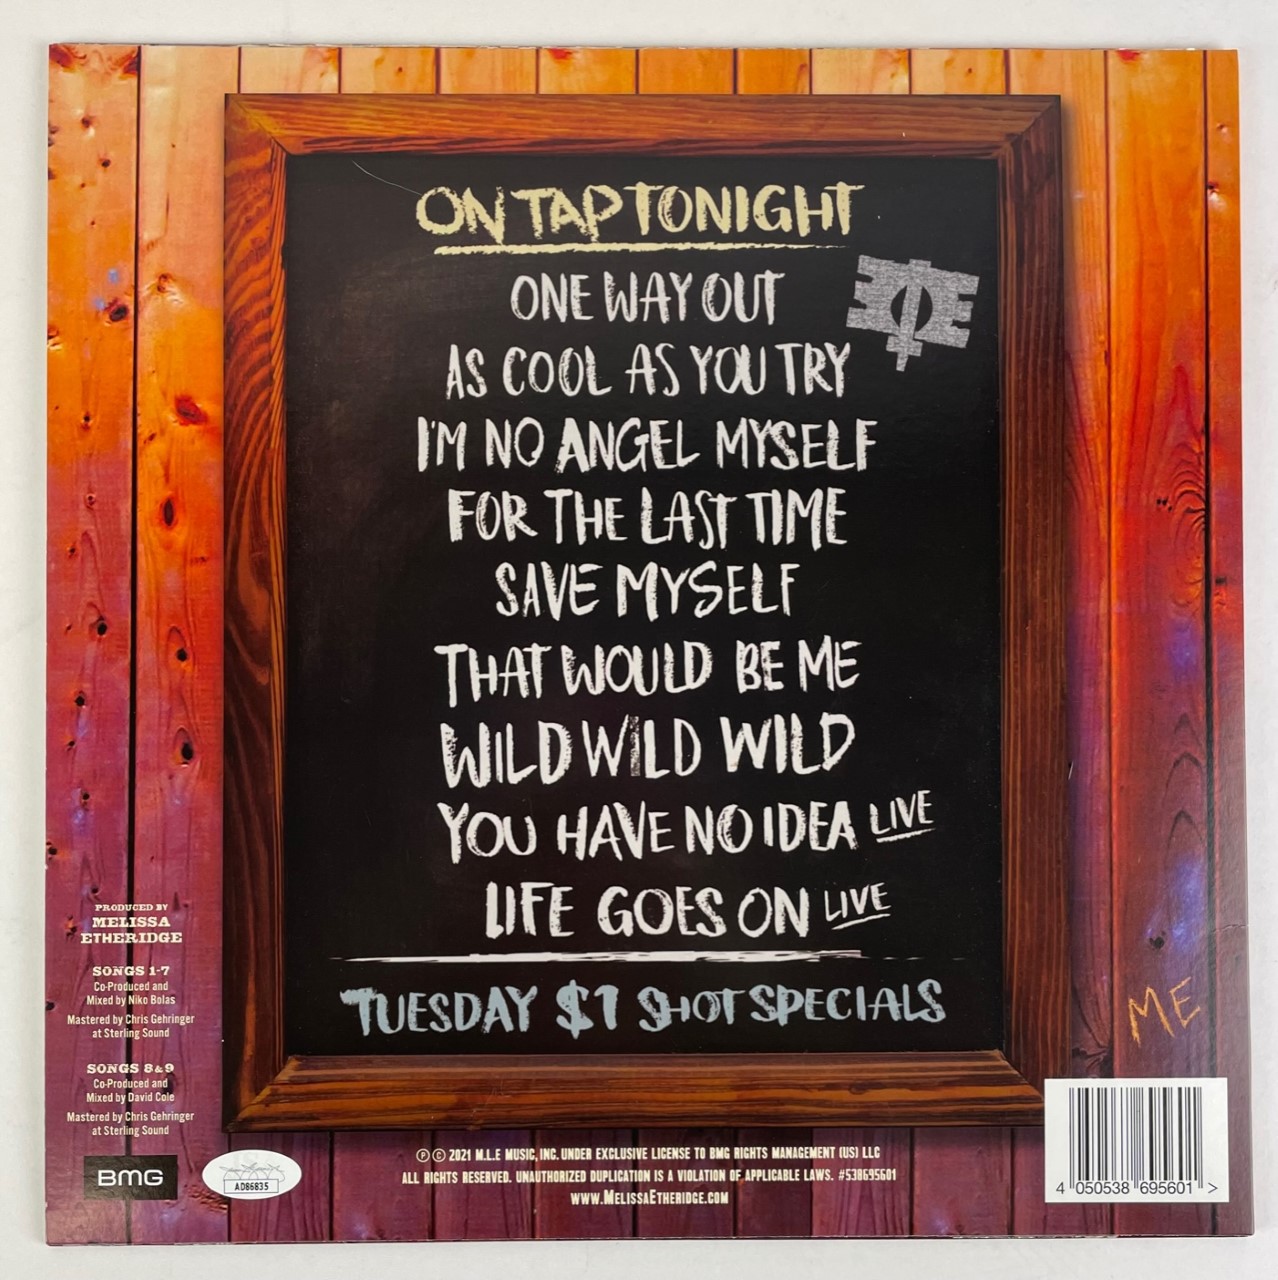 ON TAP TONIGHT
ONE WAY OUT
AS COOL AS YOU TRY
I'M NO ANGEL MYSELF
FOR THE LAST TIME
SAVE MYSELF
THAT WOULD BE ME
WILD WILD WILD
YOU HAVE NO IDEA LIVE
LIFE GOES ON LIVE
TUESDAY $1 SHOT SPECIALS
PRODUCED BY
MELISSA
ETHERIDGE
SONGS 1-7
Co-Produced and
Mixed by Niko Bolas
Mastered by Chris Gehringer
at Sterling Sound
SONGS 8 & 9
Co-Produced and
Mixed by David Cole
Mastered by Chris Gehringer
at Sterling Sound
BMG
AD86835
Ⓟ © 2021 M.L.E MUSIC, INC. UNDER EXCLUSIVE LICENSE TO BMG RIGHTS MANAGEMENT (US) LLC
ALL RIGHTS RESERVED. UNAUTHORIZED DUPLICATION IS A VIOLATION OF APPLICABLE LAWS. #538695601
WWW.MELISSAETHERIDGE.COM
ME
4 050538 695601 >